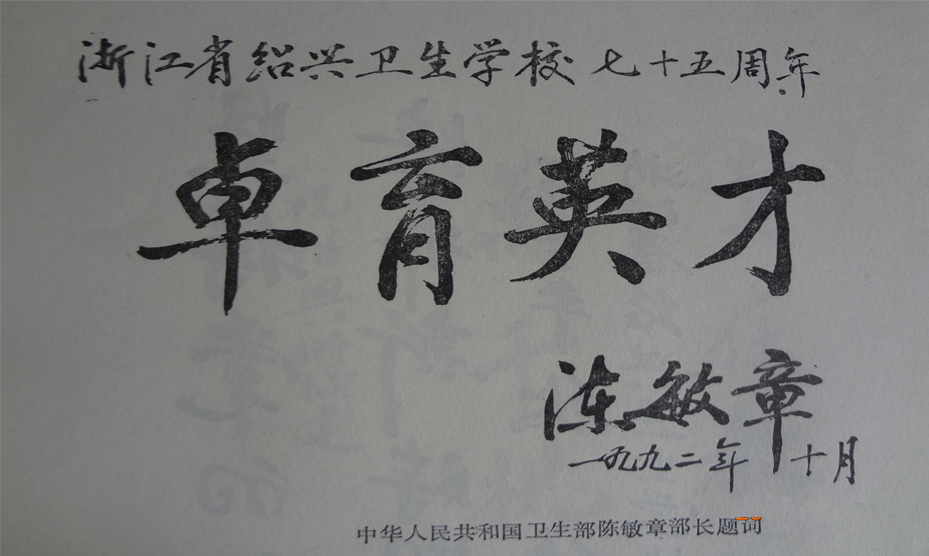 浙江省绍兴卫生学校七十五周年
卓育英才
陈敏章
一九九二年十月
中华人民共和国卫生部陈敏章部长题词